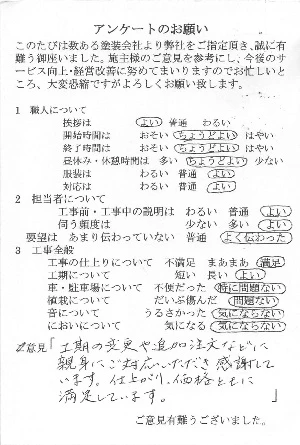 アンケートのお願い
このたびは数ある塗装会社より弊社をご指定頂き、誠に有
難う御座いました。施主様のご意見を参考にし、今後のサ
ービス向上・経営改善に努めてまいりますのでお忙しいと
ころ、大変恐縮ですがよろしくお願い致します。
1 職人について
挨拶は よい 普通 わるい
開始時間は おそい ちょうどよい はやい
終了時間は おそい ちょうどよい はやい
昼休み・休憩時間は 多い ちょうどよい 少ない
服装は わるい 普通 よい
対応は わるい 普通 よい
2 担当者について
工事前・工事中の説明は わるい 普通 よい
伺う頻度は 少ない 多い よい
要望は あまり伝わっていない 普通 よく伝わった
3 工事全般
工事の仕上りについて 不満足 まあまあ 満足
工期について 短い 長い よい
車・駐車場について 不便だった 特に問題ない
植栽について だいぶ傷んだ 問題ない
音について うるさかった 気にならない
においについて 気になる 気にならない
ご意見「工期の変更や追加注文などに
親身にご対応いただき感謝して
います。仕上がり、価格ともに
満足しています。」
ご意見有難うございました。